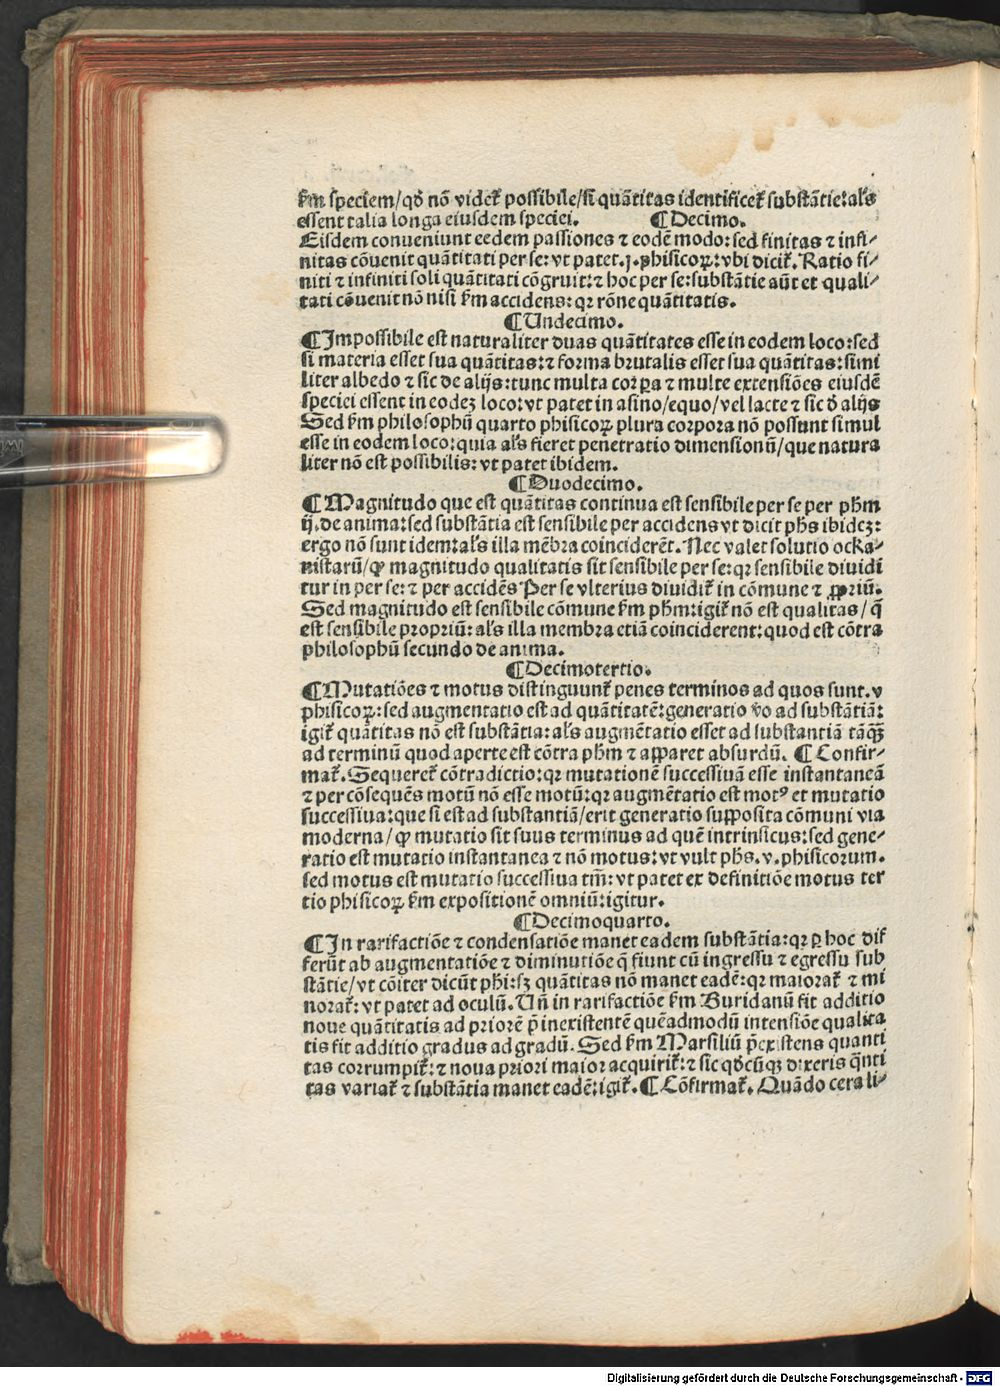 km speciem/qđ nō videt᷑ possibile/si quātitas identificet᷑ substātie:al's
essent talia longa eiusdem speciei. ¶Decimo.
Eisdem conueniunt eedem passiones ⁊ eodē modo: sed finitas ⁊ infi-
nitas cōuenit quātitati per se: vt patet.j.phisicoꝝ: vbi dicit᷑. Ratio fi-
niti ⁊ infiniti soli quātitati cōgruit: ⁊ hoc per se: substātie aūt et quali-
tati cōuenit nō nisi km accidens: qꝛ rōne quātitatis.
¶Undecimo.
¶Impossibile est naturaliter duas quātitates esse in eodem loco: sed
si materia esset sua quātitas: ⁊ forma brutalis esset sua quātitas: simi
liter albedo ⁊ sic de alijs: tunc multa corpꝑa ⁊ multe extensiōes eiusdē
speciei essent in eodeꝫ loco: vt patet in asino/equo/vel lacte ⁊ sic đ alijs
Sed km philosophū quarto phisicoꝝ plura corpora nō possunt simul
esse in eodem loco: quia al's fieret penetratio dimensionū/que natura
liter nō est possibilis: vt patet ibidem.
¶Duodecimo.
¶Magnitudo que est quātitas continua est sensibile per se per phm
ij.de anima: sed substātia est sensibile per accidens vt dicit phs ibideꝫ:
ergo nō sunt idem: al's illa mēbra coinciderēt. Nec valet solutio ocka-
nistarū/ꝙ magnitudo qualitatis sit sensibile per se: qꝛ sensibile diuidi
tur in per se: ⁊ per accidēs Per se vlterius diuidit᷑ in cōmune ⁊ ꝓpriū.
Sed magnitudo est sensibile cōmune km phm: igit᷑ nō est qualitas/q̄
est sensibile propriū: al's illa membra etiā coinciderent: quod est cōtra
philosophū secundo de anima.
¶Decimotertio.
¶Mutatiōes ⁊ motus distinguunt᷑ penes terminos ad quos sunt. v
phisicoꝝ: sed augmentatio est ad quātitatē: generatio v̊o ad substātiā:
igit᷑ quātitas nō est substātia: al's augmētatio esset ad substantiā tāq̄ꝫ
ad terminū quod aperte est cōtra phm ⁊ apparet absurdū. ¶Confir-
mat᷑. Sequeret᷑ cōtradictio: qꝛ mutationē successiuā esse instantaneā
⁊ per cōsequēs motū nō esse motū: qꝛ augmētatio est motꝰ et mutatio
successiua: que si est ad substantiā/erit generatio supposita cōmuni via
moderna/ꝙ mutatio sit suus terminus ad quē intrinsicus: sed gene-
ratio est mutatio instantanea ⁊ nō motus: vt vult phs.v.phisicorum.
sed motus est mutatio successiua tm̄: vt patet ex definitiōe motus ter
tio phisicoꝝ km expositionē omniū: igitur.
¶Decimoquarto.
¶In rarifactiōe ⁊ condensatiōe manet eadem substātia: qꝛ ꝑ hoc dif
ferūt ab augmentatiōe ⁊ diminutiōe q̄ fiunt cū ingressu ⁊ egressu sub
stātie/vt cōiter dicūt phi: sꝫ quātitas nō manet eadē: qꝛ maiorat᷑ ⁊ mi
norat᷑: vt patet ad oculū. Un̄ in rarifactiōe km Buridanū fit additio
noue quātitatis ad priorē p̄inexistentē quēadmodū intensiōe qualita
tis fit additio gradus ad gradū. Sed km Marsiliū p̄existens quanti
tas corrumpit᷑: ⁊ noua priori maior acquirit᷑: ⁊ sic qđcūqꝫ dixeris q̄nti
tas variat᷑ ⁊ substātia manet eadē: igit᷑. ¶Cōfirmat᷑. Quādo cera li-
Digitalisierung gefördert durch die Deutsche Forschungsgemeinschaft - DFG